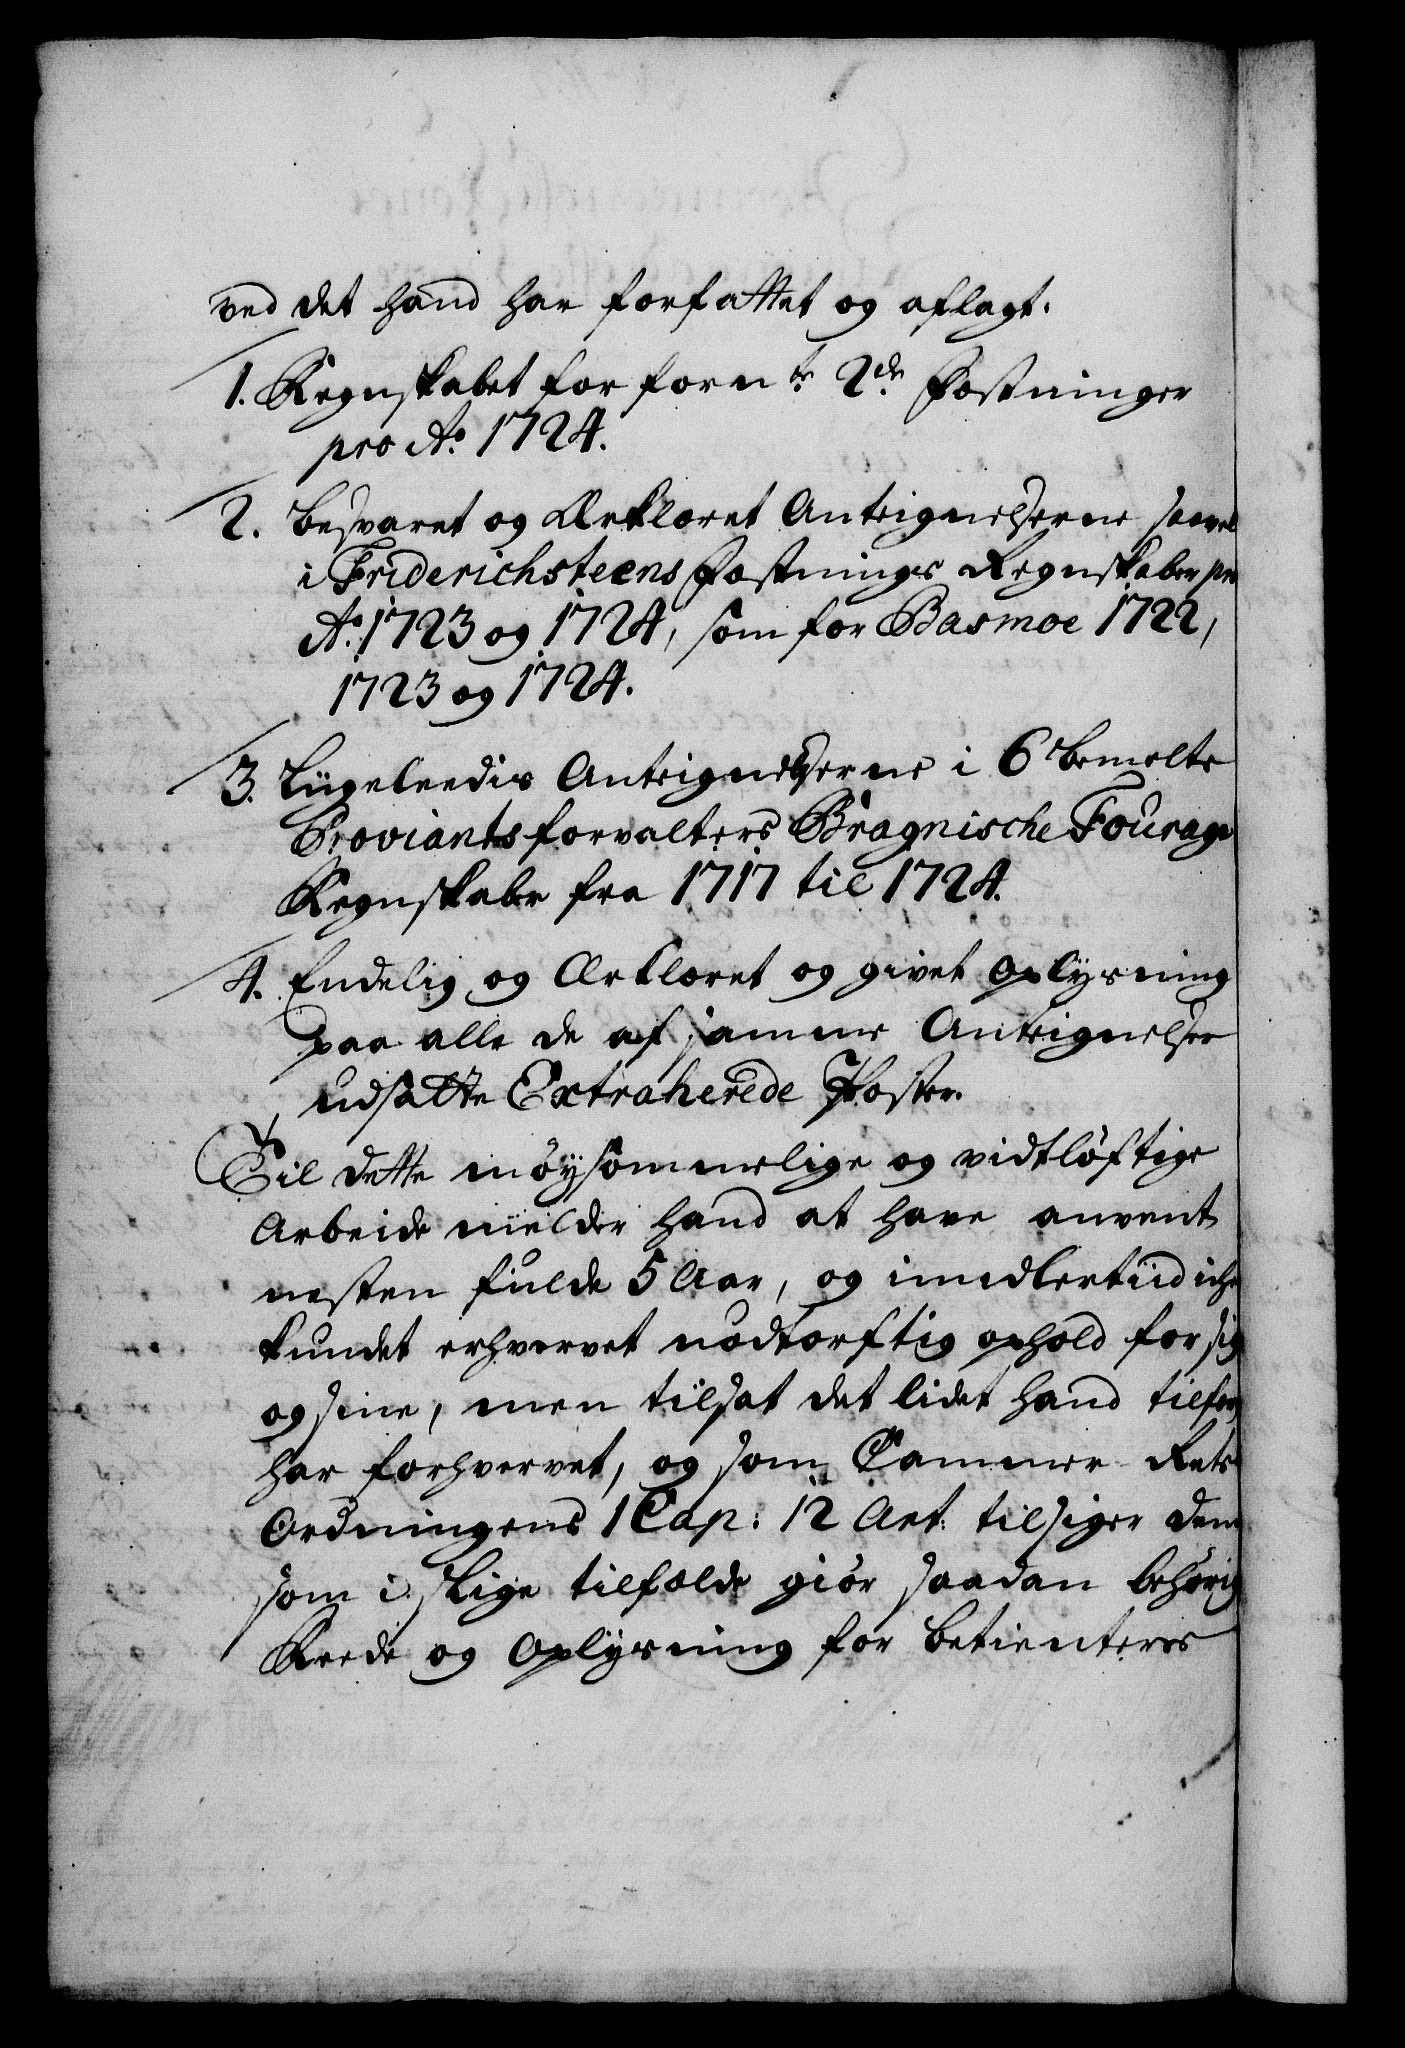 ved det hand har forfattet og aflagt.
1. Regnskabet for forn:te 2de Fæstninger
pro Ao. 1724.
2. besvaret og Ærklæret Antegnelserne saavel
i Friderichsteens Fæstnings Regnskaber pro
Ao. 1723 og 1724, som for Basmoe 1722,
1723 og 1724.
3. Ligeleedis Antegnelserne i bemelte
Proviantsforvalters Bragnische Fourage
Regnskaber fra 1717 til 1724.
4. Endelig og Ærklæret og givet Oplysning
paa alle de af samme Antegnelser
udsatte Extraherede Poster.
Til dette møysommelige og vidtløftige
Arbeide melder hand at have anvent
nesten fulde 5 Aar, og imidlertiid iche
kundet erhvervet nødtørftig ophold for sig
og sine, men tilsat det lidet hand tilforn
har forhvervet, og som Cammer Rets
Ordningens 1 Cap: 12 Art: tilsiger dem
som i slige tilfælde giør saadan behørig
Reede og Oplysning for betienteres